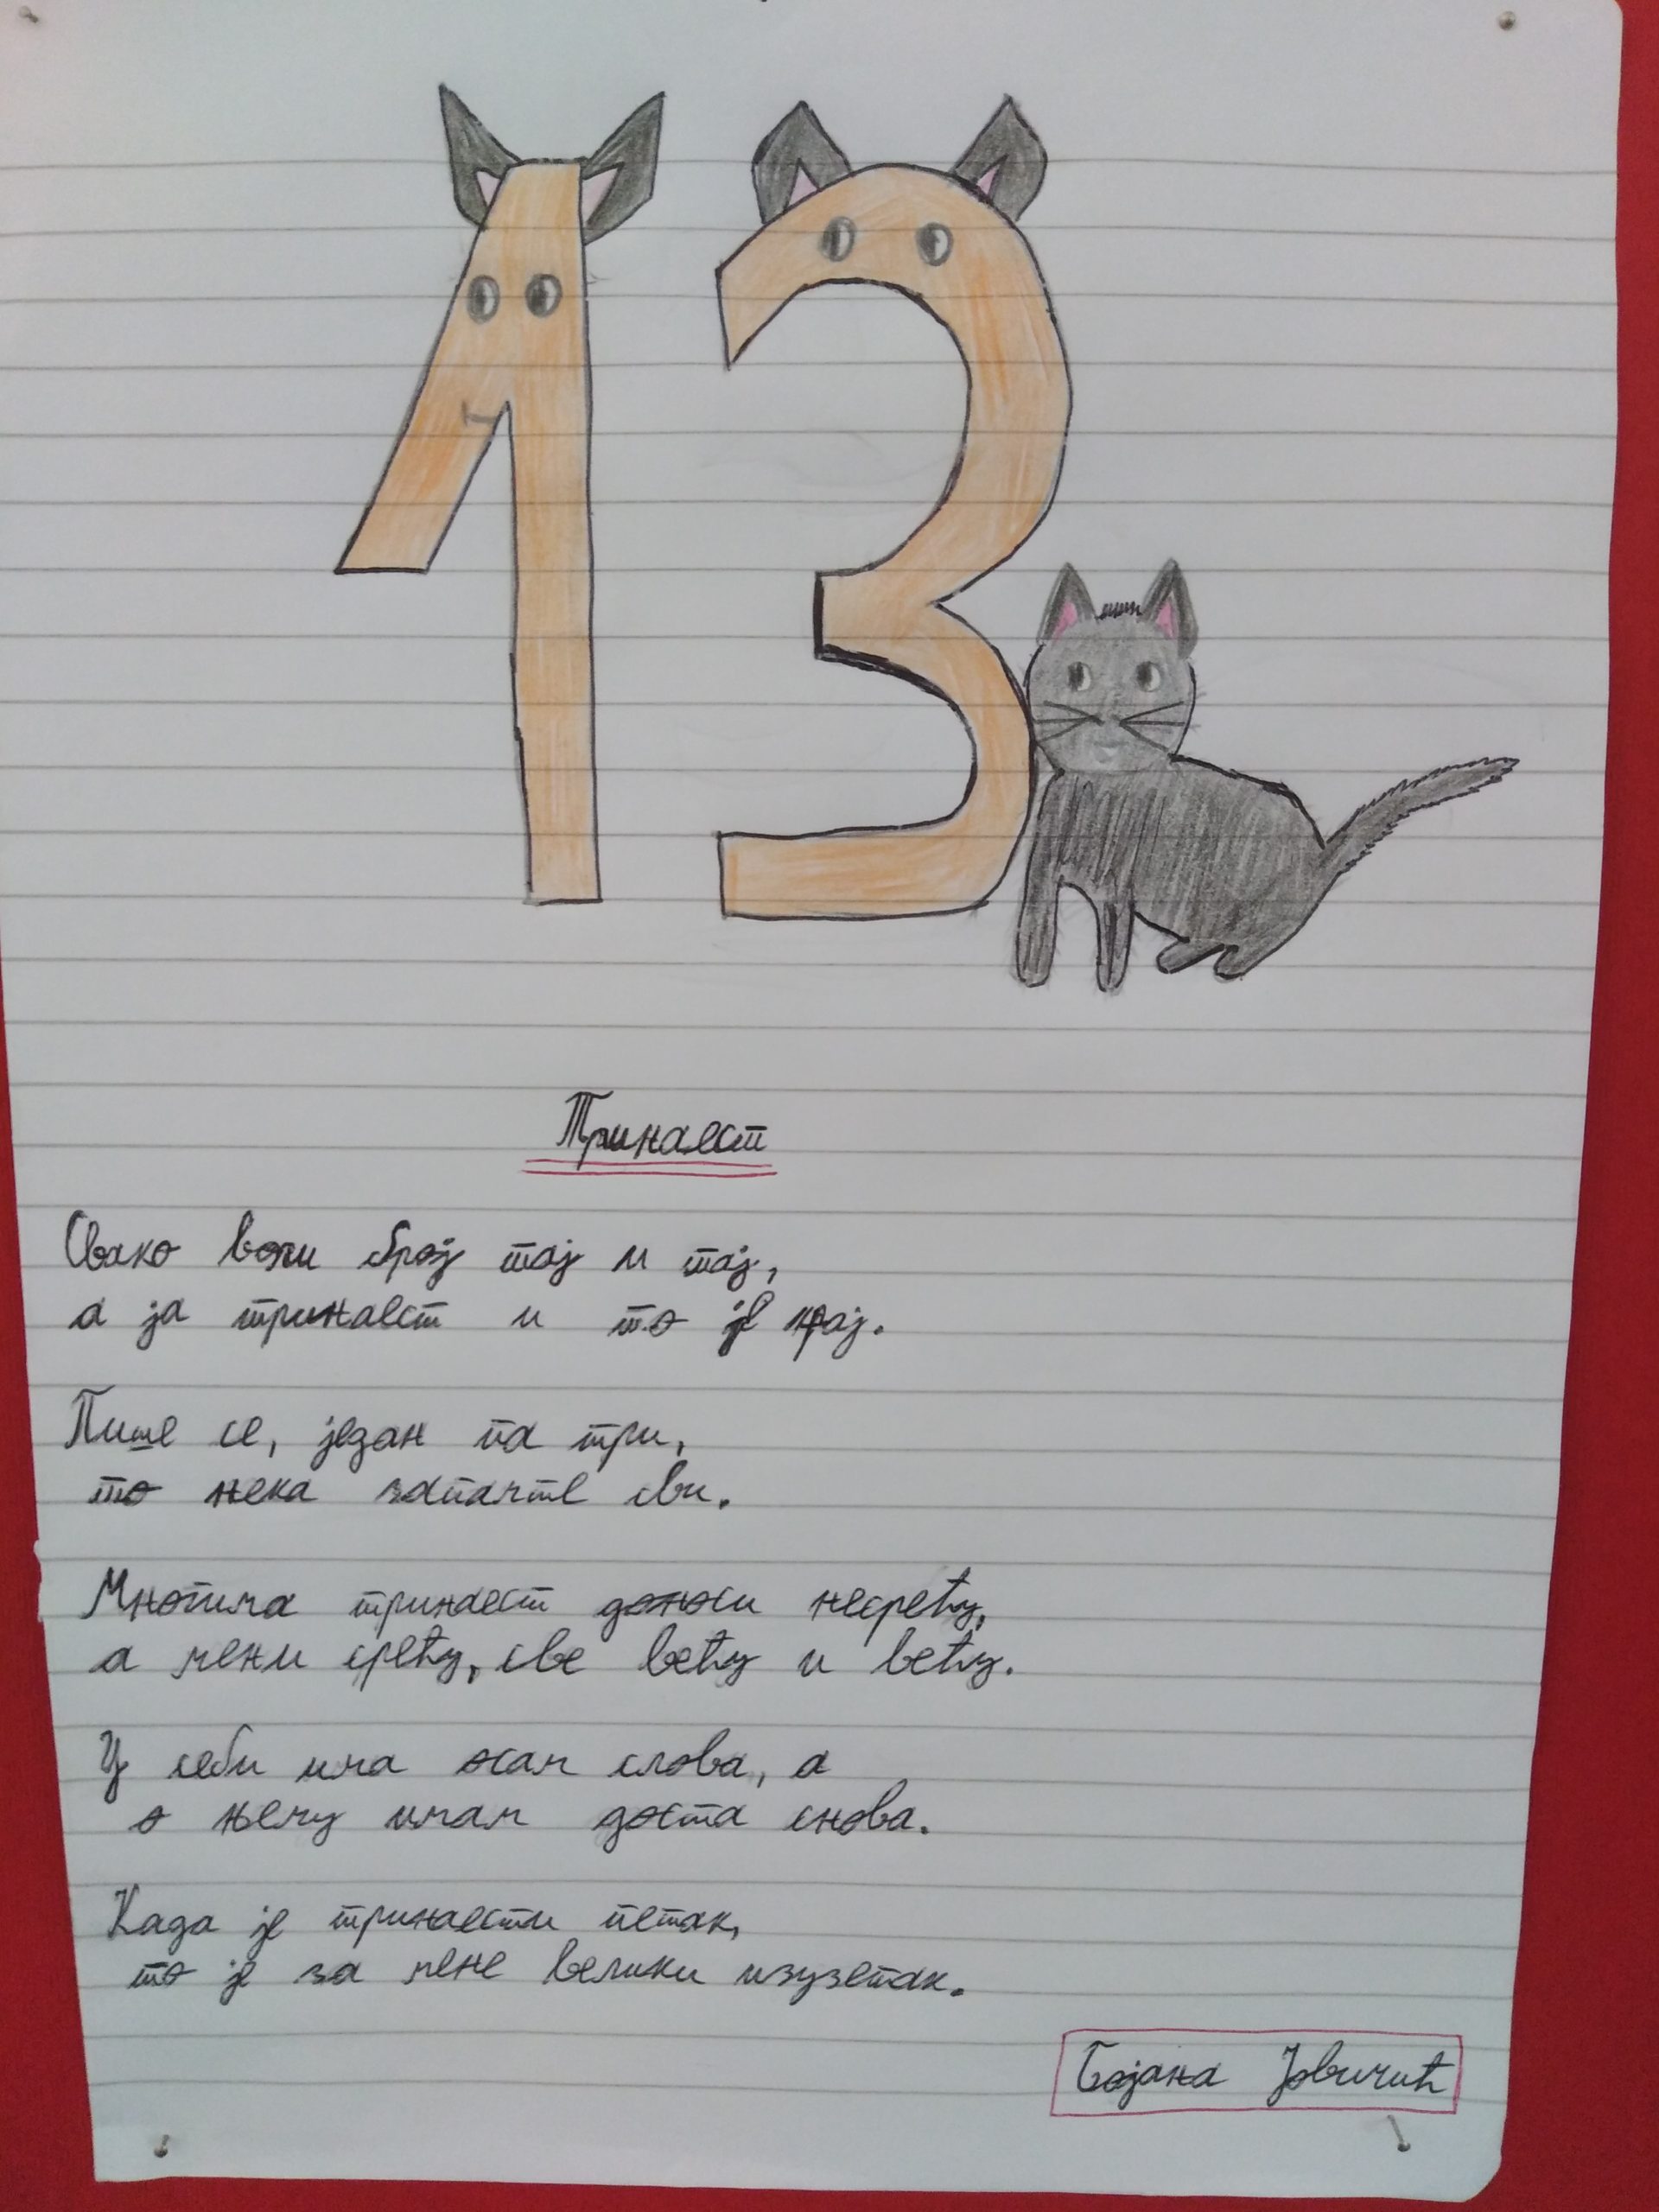 Тринаест
Свако воли број тај и тај,
а ја тринаест и то је крај.
Пише се, један па три,
то нека запамте сви.
Многима тринаест доноси несрећу,
а мени срећу, све већу и већу.
У себи има осам слова, а
о њему имам доста снова.
Када је тринаести петак,
то је за мене велики изузетак.
Бојана Јовичић